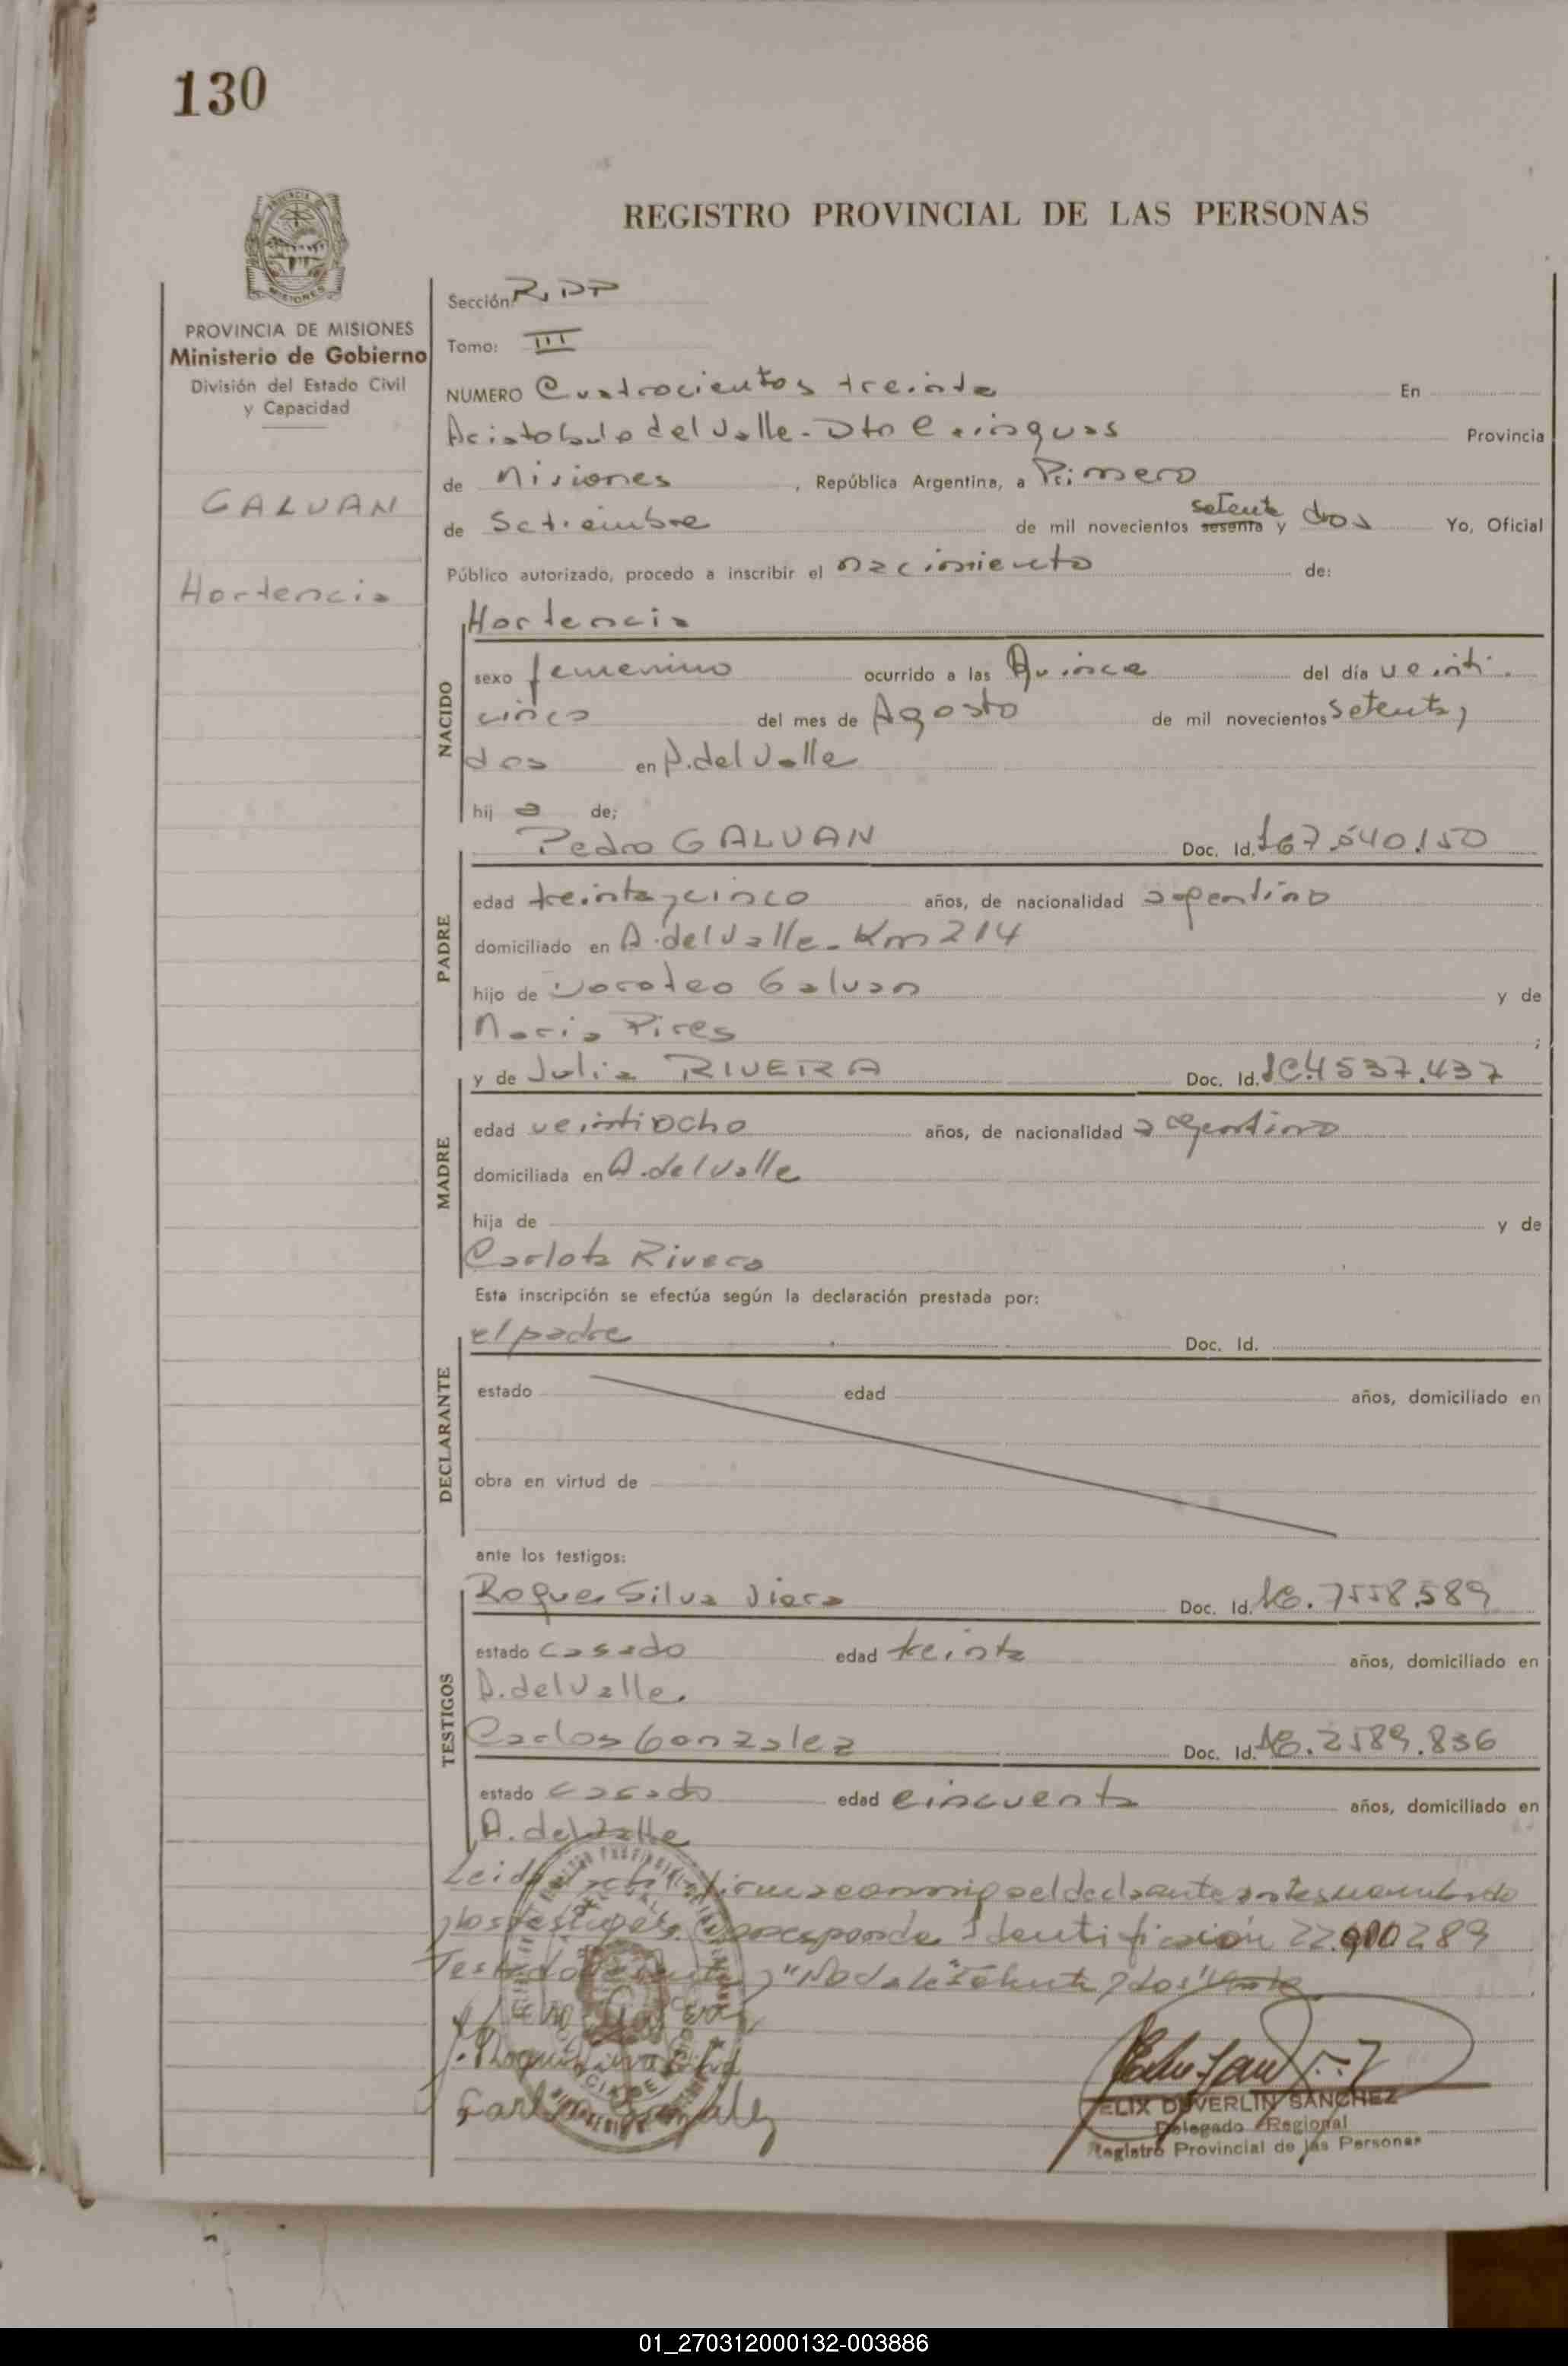 130
REGISTRO PROVINCIAL DE LAS PERSONAS
PROVINCIA DE MISIONES
Ministerio de Gobierno
División del Estado Civil
y Capacidad
GALVAN
Hortencia
Sección: R.DP
Tomo: III
NUMERO Cuatrocientos treinta En
Aristobulo del Valle - Dto Cainguas Provincia
de Misiones, República Argentina, a Primero
de Setiembre de mil novecientos sesenta setenta y dos Yo, Oficial
Público autorizado, procedo a inscribir el nacimiento de:
NACIDO
Hortencia
sexo femenino ocurrido a las Quince del día veinti
cinco del mes de Agosto de mil novecientos setenta y
dos en A. del Valle
hij a de;
PADRE
Pedro GALVAN Doc. Id. 7.540.150
edad treinta y cinco años, de nacionalidad argentino
domiciliado en A. del Valle - Km 214
hijo de Doroteo Galvan y de
Maria Pires ;
MADRE
y de Julia RIVERA Doc. Id. LC.4537.437
edad veintiocho años, de nacionalidad argentina
domiciliada en A. del Valle
hija de y de
Carlota Rivera
Esta inscripción se efectúa según la declaración prestada por:
DECLARANTE
el padre Doc. Id.
estado edad años, domiciliado en
obra en virtud de
ante los testigos:
TESTIGOS
Roque Silva Viera Doc. Id. LE. 7558.589
estado casado edad treinta años, domiciliado en
A. del Valle.
Carlos Gonzalez Doc. Id. LE. 2589.836
estado casado edad cincuenta años, domiciliado en
A. del Valle
Leida acta firma conmigo el declarante antes nombrado
y los testigos. Corresponde Identificación 22.900289
Testado
Carlos Gonzalez
FELIX DUVERLIN SANCHEZ
Delegado Regional
Registro Provincial de las Personas
01_270312000132-003886